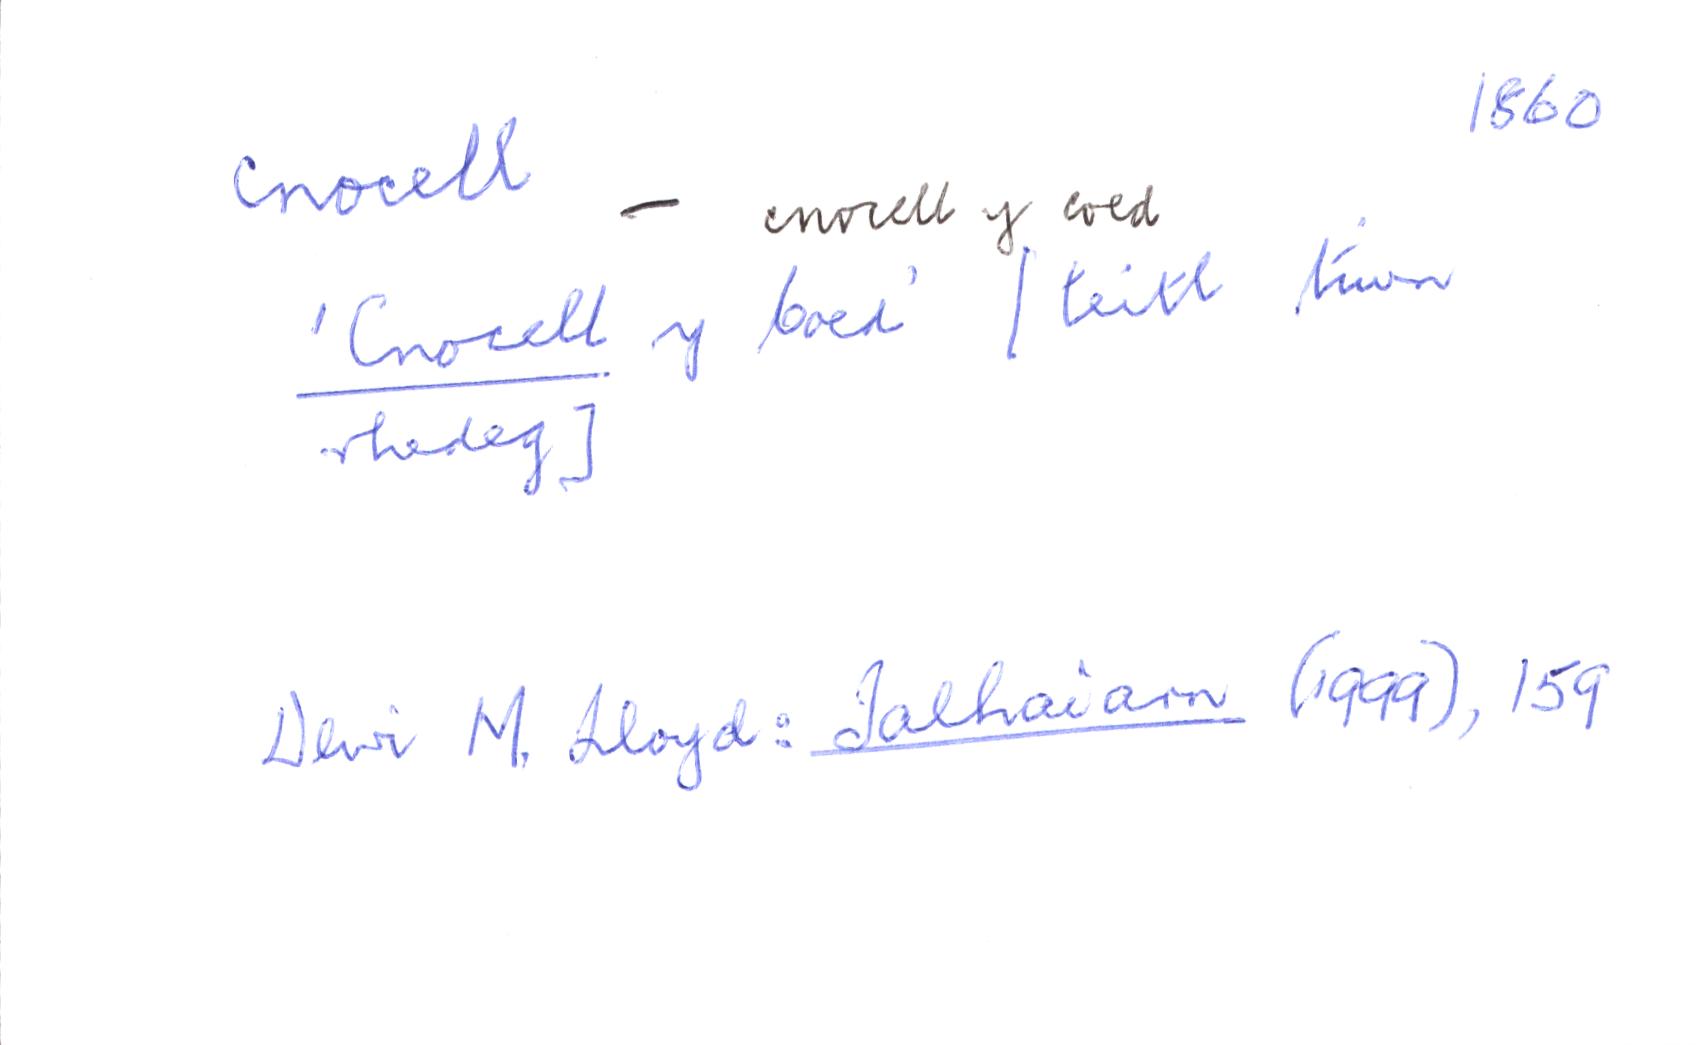 1860
cnocell – cnocell y coed
'Cnocell y Coed' [teitl tiwn
rhedeg]
Dewi M. Lloyd: Talhaiarn (1999), 159